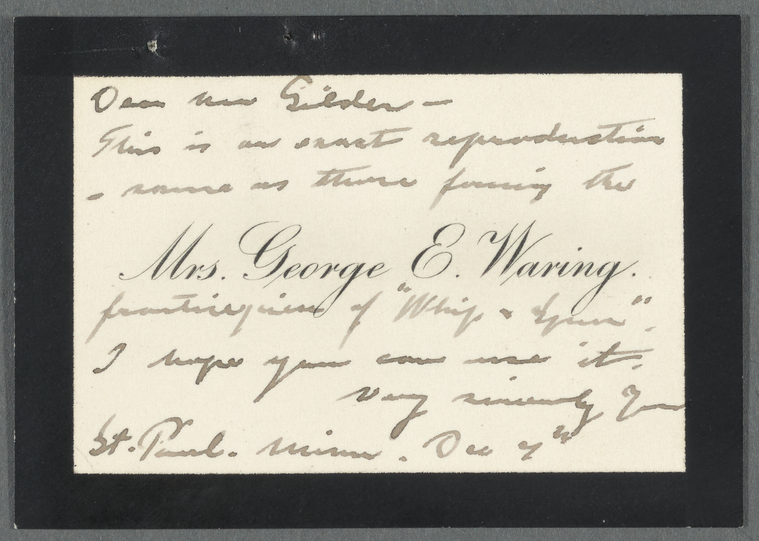 Dear Mr Gilder —
This is an exact reproduction
— same as those facing the
Mrs. George E. Waring.
frontispiece of "Whip & Spur".
I hope you can use it.
Very sincerely yrs
St. Paul. Minn. Dec 7"